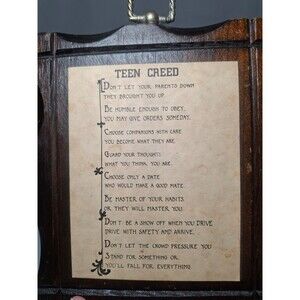 TEEN CREED
DON'T LET YOUR PARENTS DOWN
THEY BROUGHT YOU UP.
BE HUMBLE ENOUGH TO OBEY,
YOU MAY GIVE ORDERS SOMEDAY.
CHOOSE COMPANIONS WITH CARE
YOU BECOME WHAT THEY ARE
GUARD YOUR THOUGHTS
WHAT YOU THINK, YOU ARE.
CHOOSE ONLY A DATE
WHO WOULD MAKE A GOOD MATE.
BE MASTER OF YOUR HABITS
OR THEY WILL MASTER YOU
DON'T BE A SHOW OFF WHEN YOU DRIVE
DRIVE WITH SAFETY AND ARRIVE.
DON'T LET THE CROWD PRESSURE YOU
STAND FOR SOMETHING OR
YOU'LL FALL FOR EVERYTHING